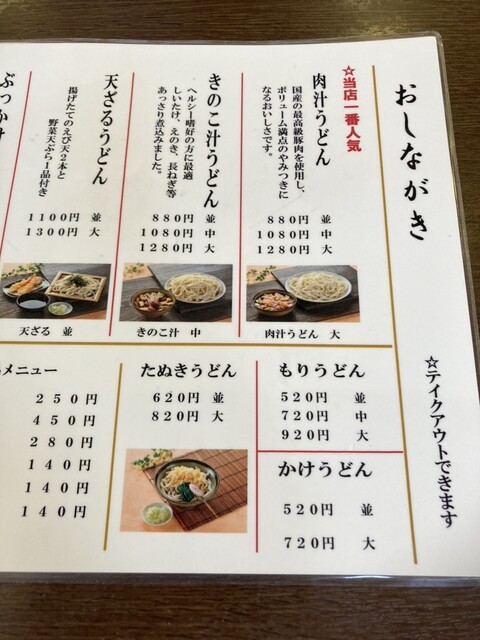 おしながき
☆テイクアウトできます
☆当店一番人気
肉汁うどん
国産の最高級豚肉を使用し、
ボリューム満点のやみつきに
なるおいしさです。
880円 並
1080円 中
1280円 大
肉汁うどん 大
きのこ汁うどん
ヘルシー嗜好の方に最適
しいたけ、えのき、長ねぎ等
あっさり煮込みました。
880円 並
1080円 中
1280円 大
きのこ汁 中
天ざるうどん
揚げたてのえび天2本と
野菜天ぷら1品付き
1100円 並
1300円 大
天ざる 並
ぶっかけ
もりうどん
520円 並
720円 中
920円 大
かけうどん
520円 並
720円 大
たぬきうどん
620円 並
820円 大
メニュー
250円
450円
280円
140円
140円
140円